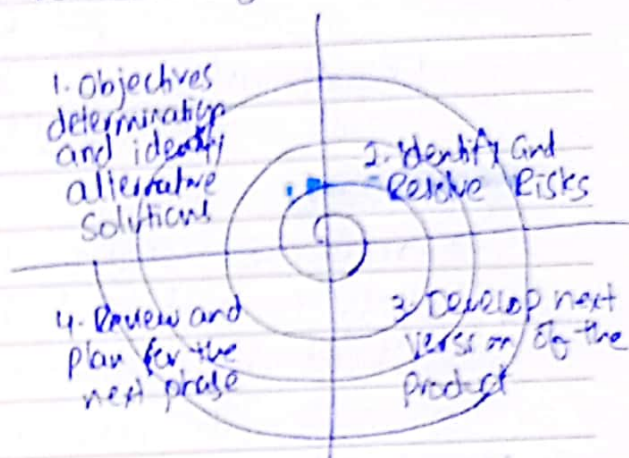 1. Objectives
determination
and identify
alternative
solutions
2. Identify and
Resolve Risks
4. Review and
plan for the
next phase
3. Develop next
version of the
Product